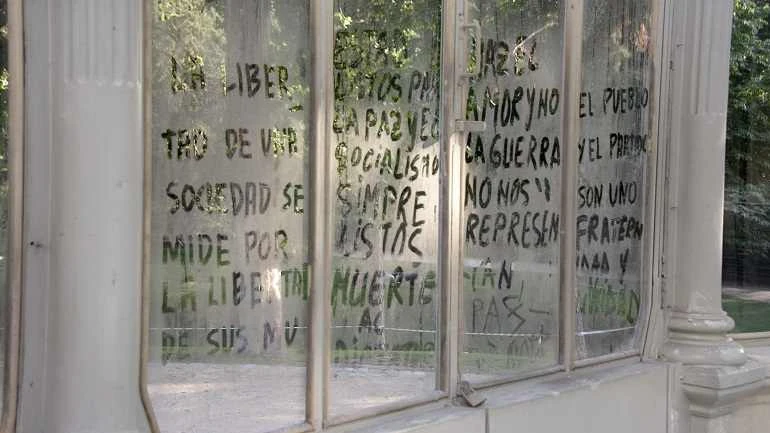 LA LIBER-
TAD DE UNA
SOCIEDAD SE
MIDE POR
LA LIBERTAD
DE SUS MU
LA PAZ Y EL
SOCIALISMO
SIMPRE
LISTOS
MUERTE
HAZ EL
AMOR Y NO
LA GUERRA
NO NOS
REPRESEN
TAN
PAZ-
EL PUEBLO
Y EL PARTIDO
SON UNO
FRATERN
Y